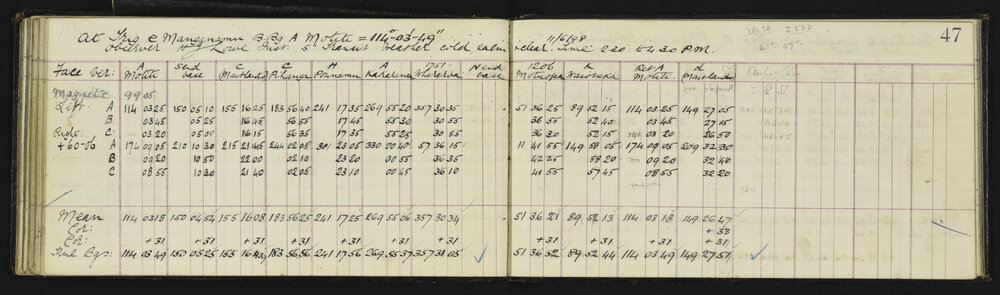 47
At Trig C Manganamu B.Bg A Motite = 114°-03'-49"
11/6/98
observer H J Lowe Inst 5" Transit Weather cold, calm & clear. Time 2.20 to 4.30 P.M.
Face ver: A Motite Send base C Maitlands C Pikunga H Panamu A Kakarama 1751 Whareroa N end base 1206 Motuopa K Ret A Motite d Maitlands
Magnetic 99 05
Left. A 114 03 25 150 05 10 155 16 25 183 56 40 241 17 35 269 55 20 357 30 35 51 36 25 89 52 15 114 03 25 149 27 05
B. 03 45 05 25 16 45 56 55 17 45 55 30 30 55 36 55 52 40 03 45 27 15
Right. C 03 20 05 00 16 15 56 35 17 35 55 25 30 55 36 30 52 15 03 20 26 50
+60-06 A 174 09 05 210 10 30 215 21 45 244 02 05 301 23 05 330 00 40 57 36 15 11 41 55 149 58 05 174 09 05 209 32 30
B 09 20 10 50 22 00 02 10 23 20 00 55 36 35 42 25 58 20 09 20 32 40
C 08 55 10 30 21 40 02 05 23 10 00 45 36 10 41 55 57 45 08 55 32 20
Mean 114 03 18 150 04 54 155 16 08 183 56 25 241 17 25 269 55 06 357 30 34 51 36 21 89 52 13 114 03 18 149 26 47
Cor: + 33
Cor: + 31 + 31 + 31 + 31 + 31 + 31 + 31 + 31 + 31 + 31 + 31
True Bgs: 114 03 49 150 05 25 155 16 183 56 56 241 17 56 269 55 37 357 31 05 51 36 52 89 52 44 114 03 49 149 27 51